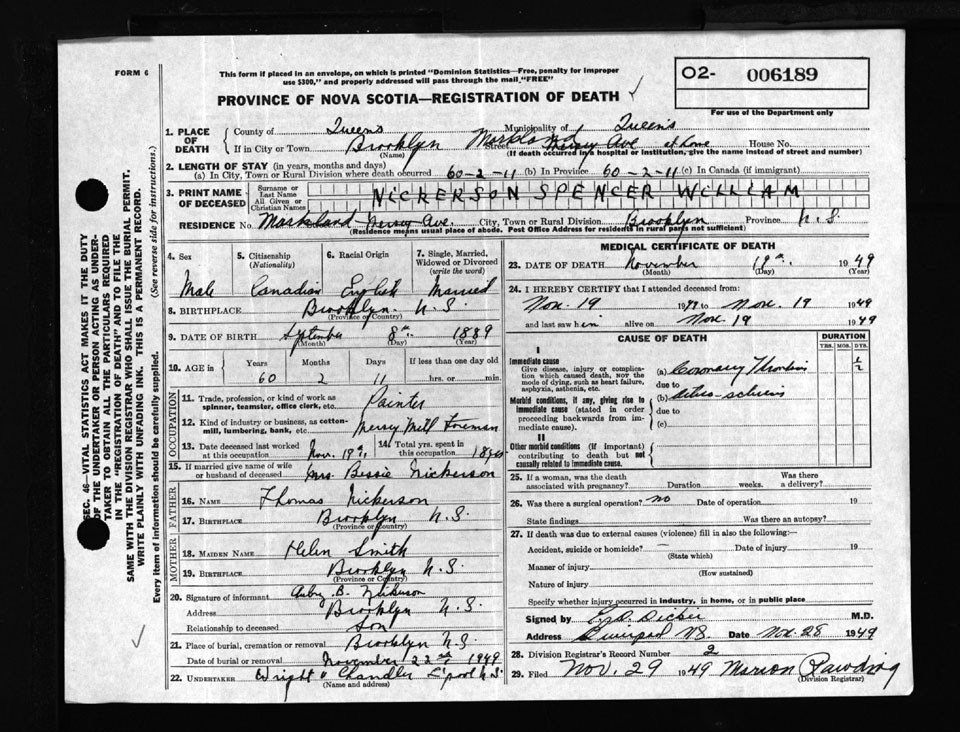 FORM 6
This form if placed in an envelope, on which is printed "Dominion Statistics—Free, penalty for improper
use $300," and properly addressed will pass through the mail "FREE"
O2- 006189
PROVINCE OF NOVA SCOTIA—REGISTRATION OF DEATH
For use of the Department only
SEC. 46—VITAL STATISTICS ACT MAKES IT THE DUTY
OF THE UNDERTAKER OR PERSON ACTING AS UNDER-
TAKER TO OBTAIN ALL THE PARTICULARS REQUIRED
IN THE "REGISTRATION OF DEATH" AND TO FILE THE
SAME WITH THE DIVISION REGISTRAR WHO SHALL ISSUE THE BURIAL PERMIT.
WRITE PLAINLY WITH UNFADING INK. THIS IS A PERMANENT RECORD.
Every item of information should be carefully supplied. (See reverse side for instructions.)
1. PLACE OF DEATH
County of Queens Municipality of Queens
If in City or Town Brooklyn Street Markland Mersey Ave at home House No.
(Name) (If death occurred in a hospital or institution, give the name instead of street and number)
2. LENGTH OF STAY (in years, months and days)
(a) In City, Town or Rural Division where death occurred 60-2-11 (b) In Province 60-2-11 (c) In Canada (if immigrant)
3. PRINT NAME OF DECEASED
Surname or Last Name
All Given or Christian Names
NICKERSON SPENCER WILLIAM
RESIDENCE No. Markland Mersey Ave. City, Town or Rural Division Brooklyn Province N.S.
(Residence means usual place of abode. Post Office Address for residents in rural parts not sufficient)
4. Sex 5. Citizenship (Nationality) 6. Racial Origin 7. Single, Married, Widowed or Divorced (write the word)
Male Canadian English Married
8. BIRTHPLACE Brooklyn. N.S.
(Province or Country)
9. DATE OF BIRTH September 8th 1889
(Month) (Day) (Year)
10. AGE in Years Months Days If less than one day old
60 2 11 hrs. or min.
OCCUPATION
11. Trade, profession, or kind of work as spinner, teamster, office clerk, etc. Painter
12. Kind of industry or business, as cotton-mill, lumbering, bank, etc. Mersey Mill Foreman
13. Date deceased last worked at this occupation Nov. 19
14. Total yrs. spent in this occupation
15. If married give name of wife or husband of deceased Mrs. Bessie Nickerson
FATHER
16. NAME Thomas Nickerson
17. BIRTHPLACE Brooklyn N.S.
(Province or Country)
MOTHER
18. MAIDEN NAME Helen Smith
19. BIRTHPLACE Brooklyn N.S.
(Province or Country)
20. Signature of informant B. Nickerson
Address Brooklyn N.S.
Relationship to deceased Son
21. Place of burial, cremation or removal Brooklyn N.S.
Date of burial or removal November 22nd 1949
22. UNDERTAKER Wright & Chandler L'pool N.S.
(Name and address)
MEDICAL CERTIFICATE OF DEATH
23. DATE OF DEATH November 19th 1949
(Month) (Day) (Year)
24. I HEREBY CERTIFY that I attended deceased from:
Nov. 19 1949 to Nov. 19 1949
and last saw him alive on Nov. 19 1949
CAUSE OF DEATH DURATION
YRS. MOS. DYS.
I
Immediate cause
Give disease, injury or complication which caused death, NOT the mode of dying, such as heart failure, asphyxia, asthenia, etc.
(a) Coronary Thrombosis 1/2
due to
Morbid conditions, if any, giving rise to immediate cause (stated in order proceeding backwards from immediate cause).
(b) Arterio-sclerosis
due to
(c)
II
Other morbid conditions (if important) contributing to death but not causally related to immediate cause.
25. If a woman, was the death associated with pregnancy? Duration weeks. Was there a delivery?
26. Was there a surgical operation? no Date of operation 19
State findings Was there an autopsy?
27. If death was due to external causes (violence) fill in also the following:—
Accident, suicide or homicide? — Date of injury 19
(State which)
Manner of injury
(How sustained)
Nature of injury
Specify whether injury occurred in industry, in home, or in public place
Signed by Dickie M.D.
Address Liverpool N.S. Date Nov. 28 1949
28. Division Registrar's Record Number 2
29. Filed Nov. 29 1949 Marion Rawding
(Division Registrar)